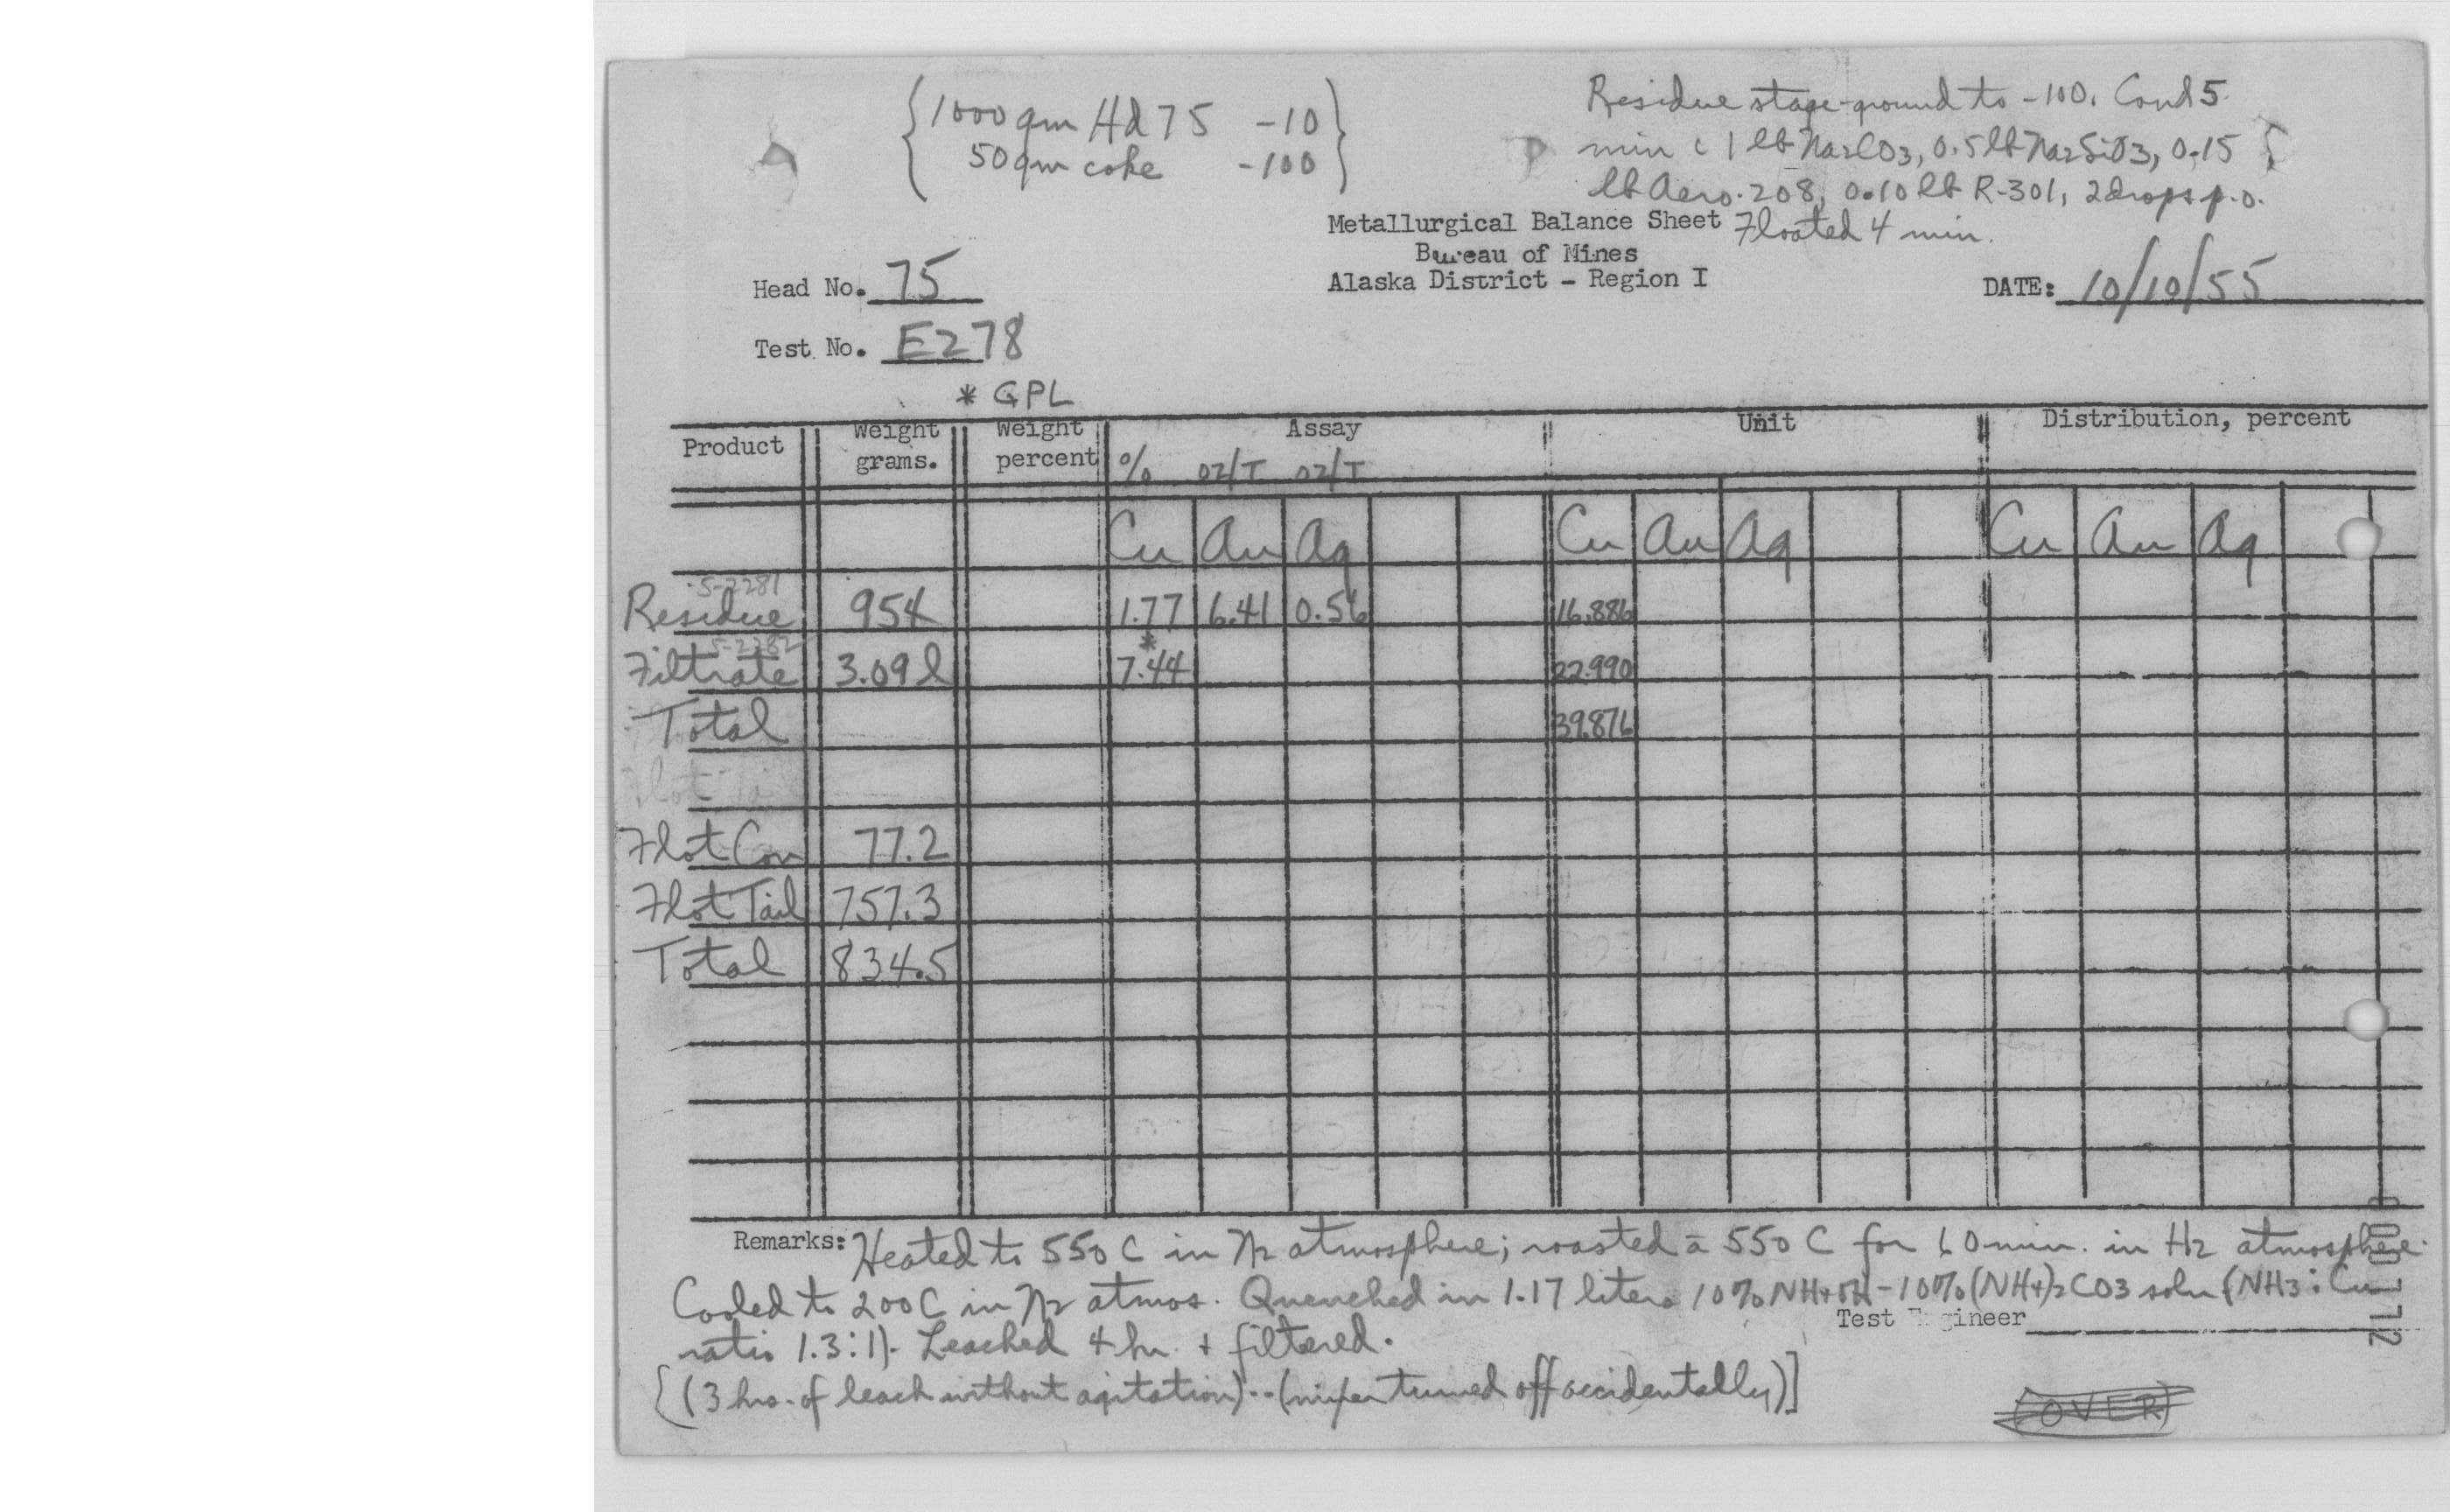 {1000 gm Hd 75 -10}
{50 gm coke -100}
Residue stage-ground to -100. Cond 5
min c 1 lb Na2CO3, 0.5 lb Na2SiO3, 0.15
lb Aero. 208, 0.10 lb R-301, 2 drops p.o.
Floated 4 min.
Metallurgical Balance Sheet
Bureau of Mines
Alaska District - Region I
Head No. 75
DATE: 10/10/55
Test No. E278
* GPL
Product Weight grams. Weight percent Assay Unit Distribution, percent
% oz/T oz/T
Cu Au Ag Cu Au Ag Cu Au Ag
5-2281
Residue 954 1.77 6.41 0.56 16.886
5-2282 *
Filtrate 3.09 l 7.44 22.990
Total 39.876
Flot Tail
Flot Con 77.2
Flot Tail 757.3
Total 834.5
Remarks: Heated to 550 C in N2 atmosphere; roasted a 550 C for 60 min. in H2 atmosphere.
Cooled to 200 C in N2 atmos. Quenched in 1.17 liters 10% NH4OH-10% (NH4)2CO3 soln (NH3:Cu
Test Engineer
ratio 1.3:1). Leached 4 hr. + filtered.
[(3 hrs. of leach without agitation)--(mixer turned off accidentally)]
(OVER)